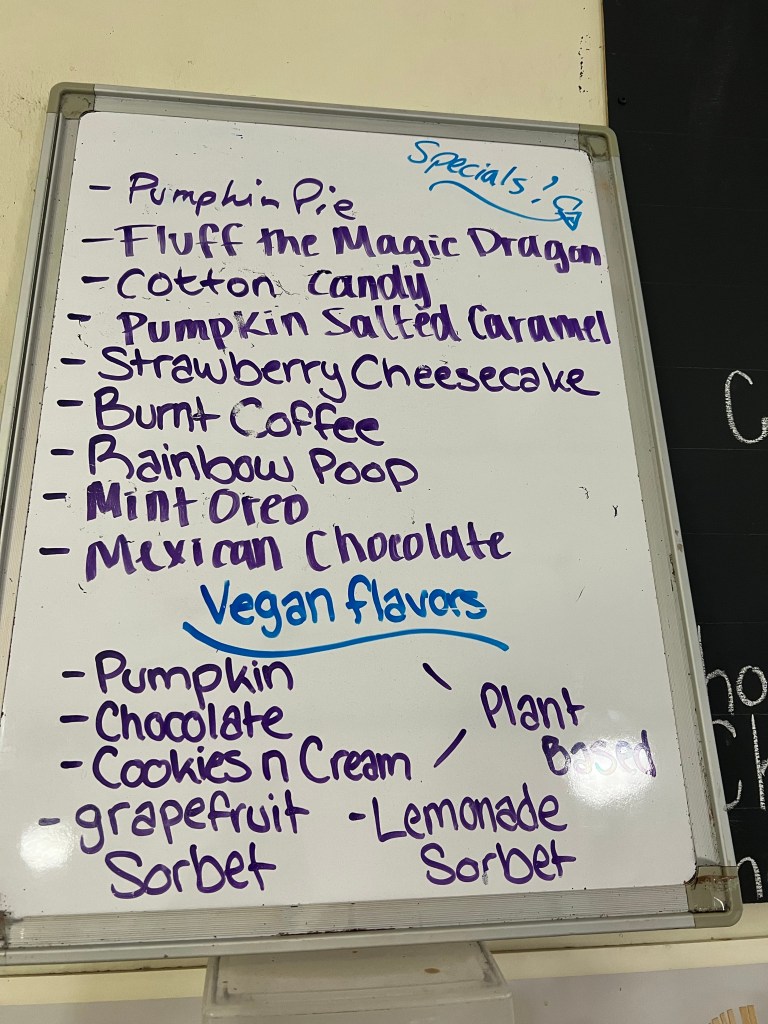 Specials!
- Pumpkin Pie
- Fluff the Magic Dragon
- Cotton Candy
- Pumpkin Salted Caramel
- Strawberry Cheesecake
- Burnt Coffee
- Rainbow Poop
- Mint Oreo
- Mexican Chocolate
Vegan flavors
- Pumpkin
- Chocolate
- Cookies n Cream
Plant
Based
- grapefruit
Sorbet
- Lemonade
Sorbet